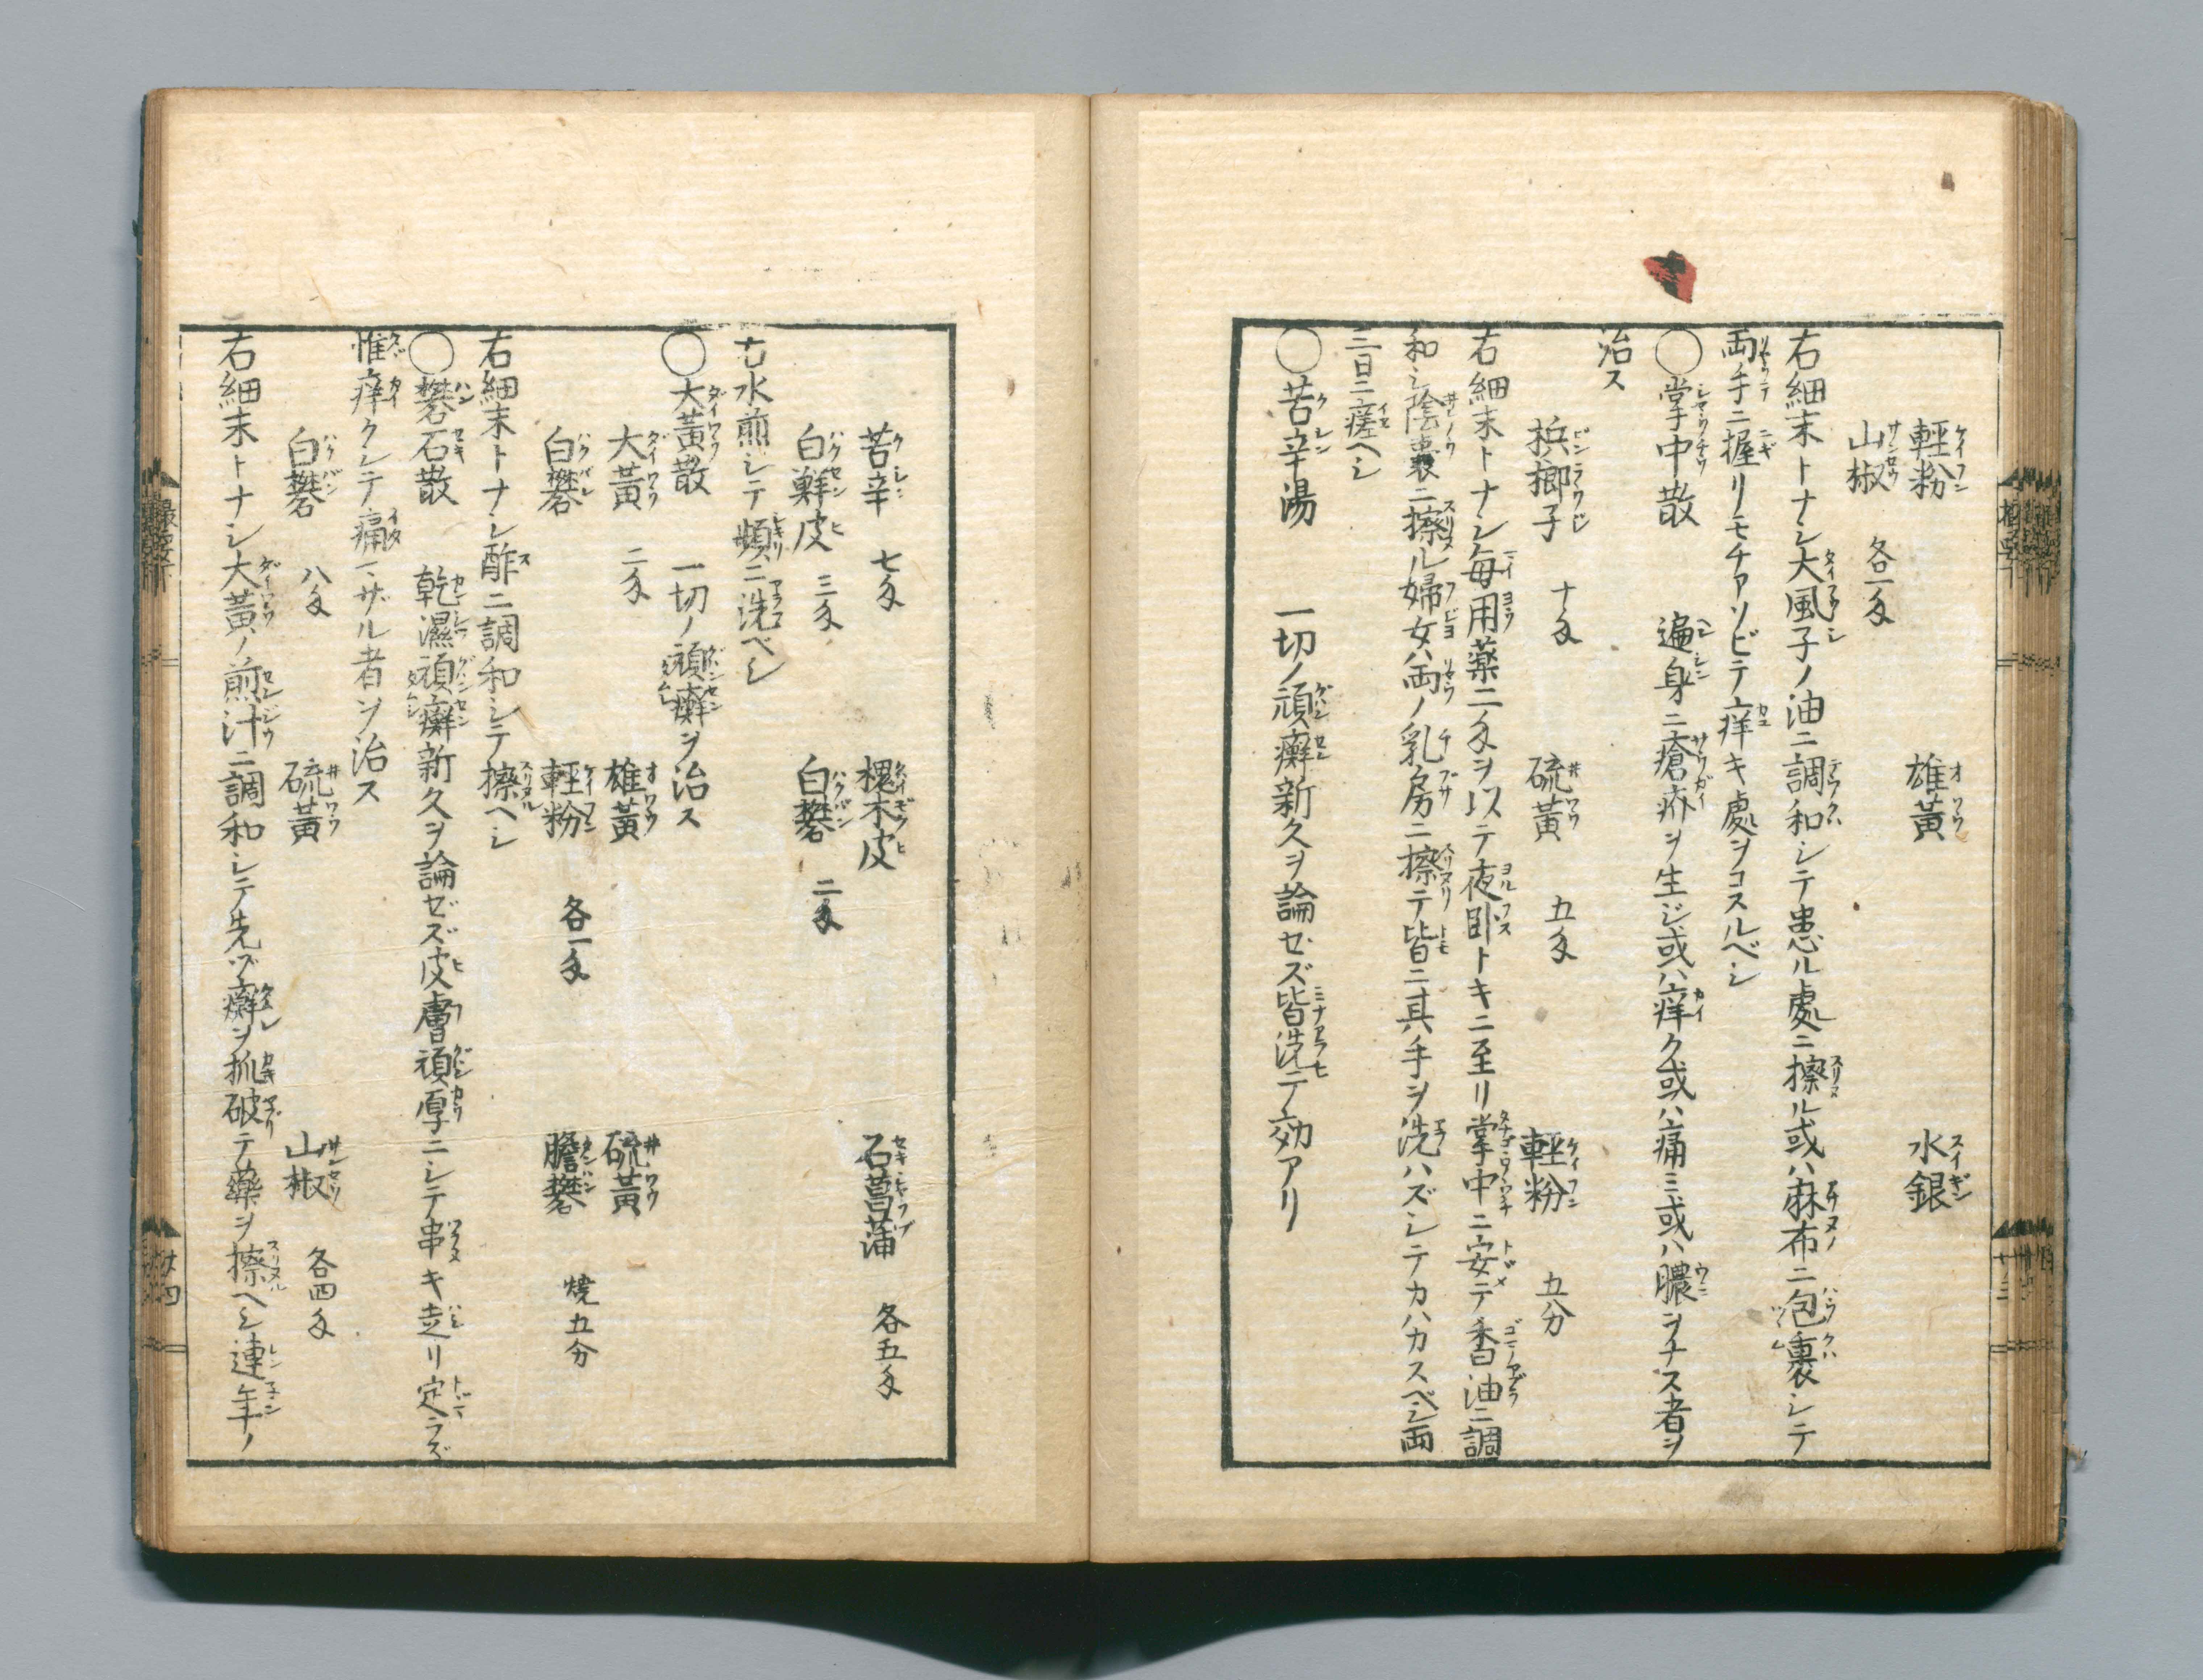 輕粉 雄黃 水銀
山椒 各一匁
右細末トナシ大風子ノ油ニ調和シテ患ル處ニ擦ル或ハ麻布ニ包裹シテ
両手ニ握リモチアソビテ痒キ處ヲコスルベシ
〇掌中散 遍身ニ瘡疥ヲ生ジ或ハ痒ク或ハ痛ミ或ハ膿ヲナス者ヲ
治ス
梹榔子 十匁 硫黃 五匁 輕粉 五分
右細末トナシ每用薬二匁ヲ以テ夜卧トキニ至リ掌中ニ安テ香油ニ調
和シ陰裏ニ擦ル婦女ハ両ノ乳房ニ擦テ皆ニ其手ヲ洗ハズシテカハカスベシ両
三日ニ瘥ヘシ
〇苦辛湯 一切ノ頑癬新久ヲ論ゼズ皆洗テ効アリ
苦辛 七匁 槐木皮 石菖蒲 各五匁
白鮮皮 三匁 白礬 二匁
右水煎シテ頻ニ洗ベシ
〇大黃散 一切ノ頑癬ヲ治ス
大黃 二匁 雄黃 硫黃
白礬 輕粉 各一匁 膽礬 燒五分
右細末トナシ酢ニ調和シテ擦ヘシ
〇礬石散 乾濕頑癬新久ヲ論ゼズ皮膚頑厚ニシテ串キ走リ定ラズ
惟痒クシテ痛マザル者ヲ治ス
白礬 八匁 硫黃 山椒 各四匁
右細末トナシ大黃ノ煎汁ニ調和シテ先ヅ癬ヲ抓破テ藥ヲ擦ヘシ連年ノ
廿四